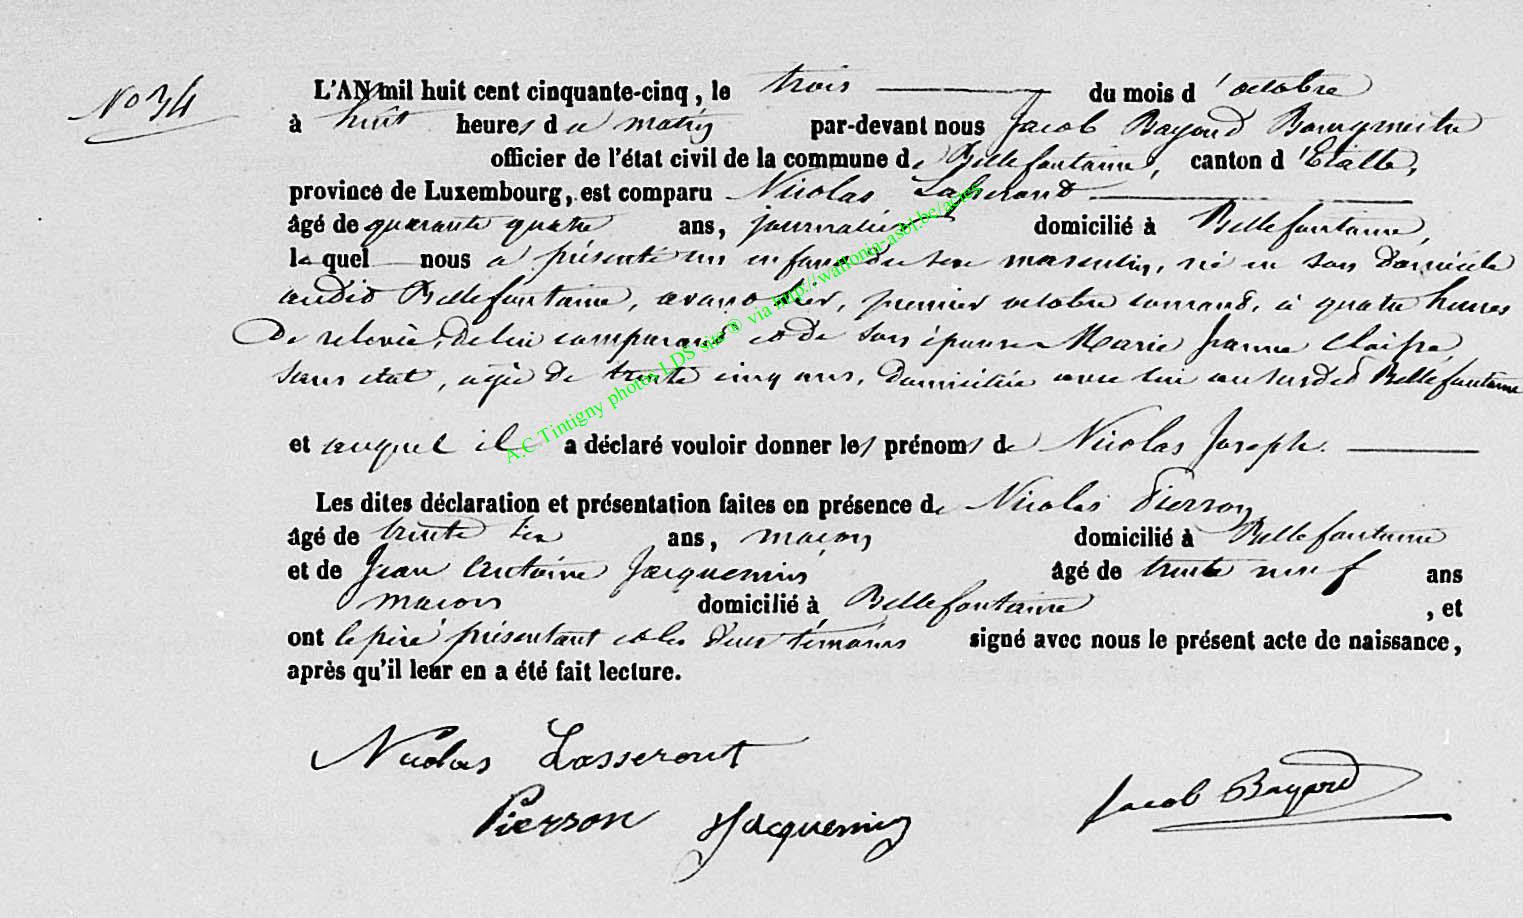 No 34
L'AN mil huit cent cinquante-cinq, le trois du mois d'octobre
à huit heures du matin par-devant nous Jacob Bayard Bourgmestre
officier de l'état civil de la commune de Bellefontaine, canton d'Etalle,
province de Luxembourg, est comparu Nicolas Lasseront
âgé de quarante quatre ans, journalier domicilié à Bellefontaine,
lequel nous a présenté un enfant du sexe masculin, né en son domicile
audit Bellefontaine, avant hier, premier octobre courant, à quatre heures
de relevée, de lui comparant et de son épouse Marie Jeanne
sans état, agée de trente cinq ans, domiciliée avec lui au susdit Bellefontaine
et auquel il a déclaré vouloir donner les prénoms de Nicolas Joseph.
Les dites déclaration et présentation faites en présence de Nicolas Pierson
âgé de trente ans, maçon domicilié à Bellefontaine
et de Jean Antoine Jacquemin âgé de trente neuf ans
maçon domicilié à Bellefontaine, et
ont le père présentant et les deux témoins signé avec nous le présent acte de naissance,
après qu'il leur en a été fait lecture.
Nicolas Lasseront
Pierson Jacquemin
Jacob Bayard
A.C Tintigny photos LDS site © via http://wallonia-asbl.be/actes